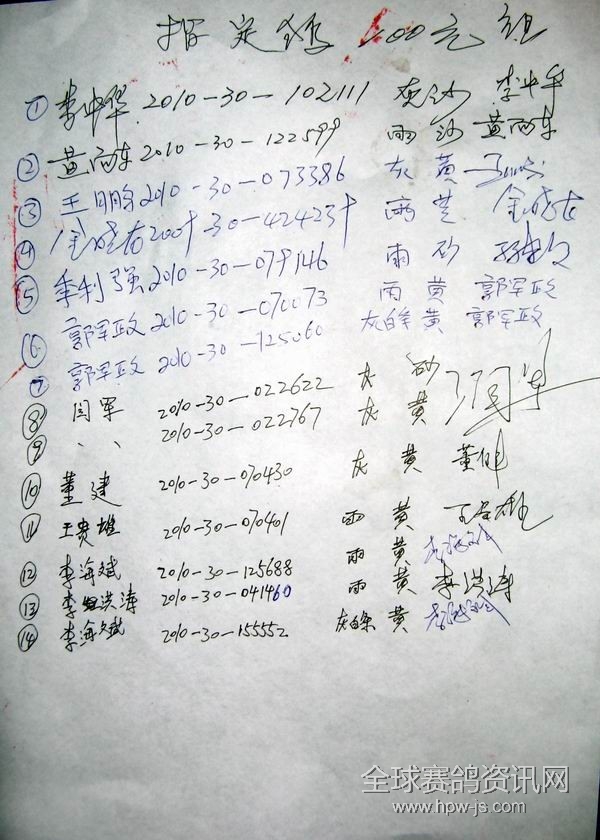 指定鸽 100元组
① 李中华 2010-30-102111 灰沙 李中华
② 黄丙东 2010-30-122599 雨沙 黄丙东
③ 王鹏 2010-30-073386 灰黄
④ 2009-30-424239 雨芝
⑤ 季利强 2010-30-079146 雨砂
⑥ 郭军政 2010-30-070073 雨黄 郭军政
⑦ 郭军政 2010-30-125060 灰白条黄 郭军政
⑧ 闫军 2010-30-022622 灰砂
⑨ 〃 2010-30-022767 灰黄
⑩ 董建 2010-30-070430 灰黄 董建
⑪ 王贵雄 2010-30-070401 雨黄 王贵雄
⑫ 李海斌 2010-30-125688 雨黄
⑬ 李洪涛 2010-30-041460 雨黄 李洪涛
⑭ 李海斌 2010-30-155552 灰白条黄
全球赛鸽资讯网
www.hpw-js.com